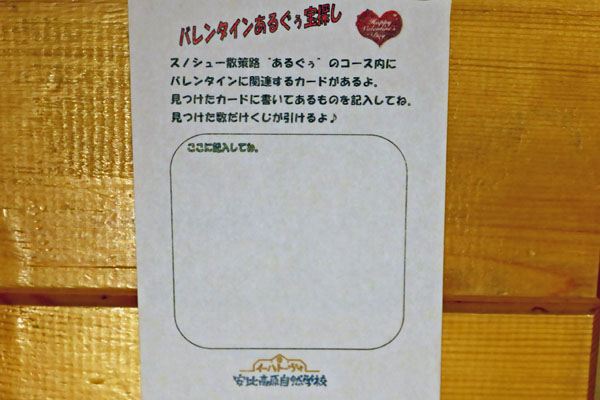 バレンタインあるぐぅ宝探し
Happy
Valentine's
Day
スノシュー散策路“あるぐぅ”のコース内に
バレンタインに関連するカードがあるよ。
見つけたカードに書いてあるものを記入してね。
見つけた数だけくじが引けるよ♪
ここに記入してね。
イーハトーヴォ
安比高原自然学校